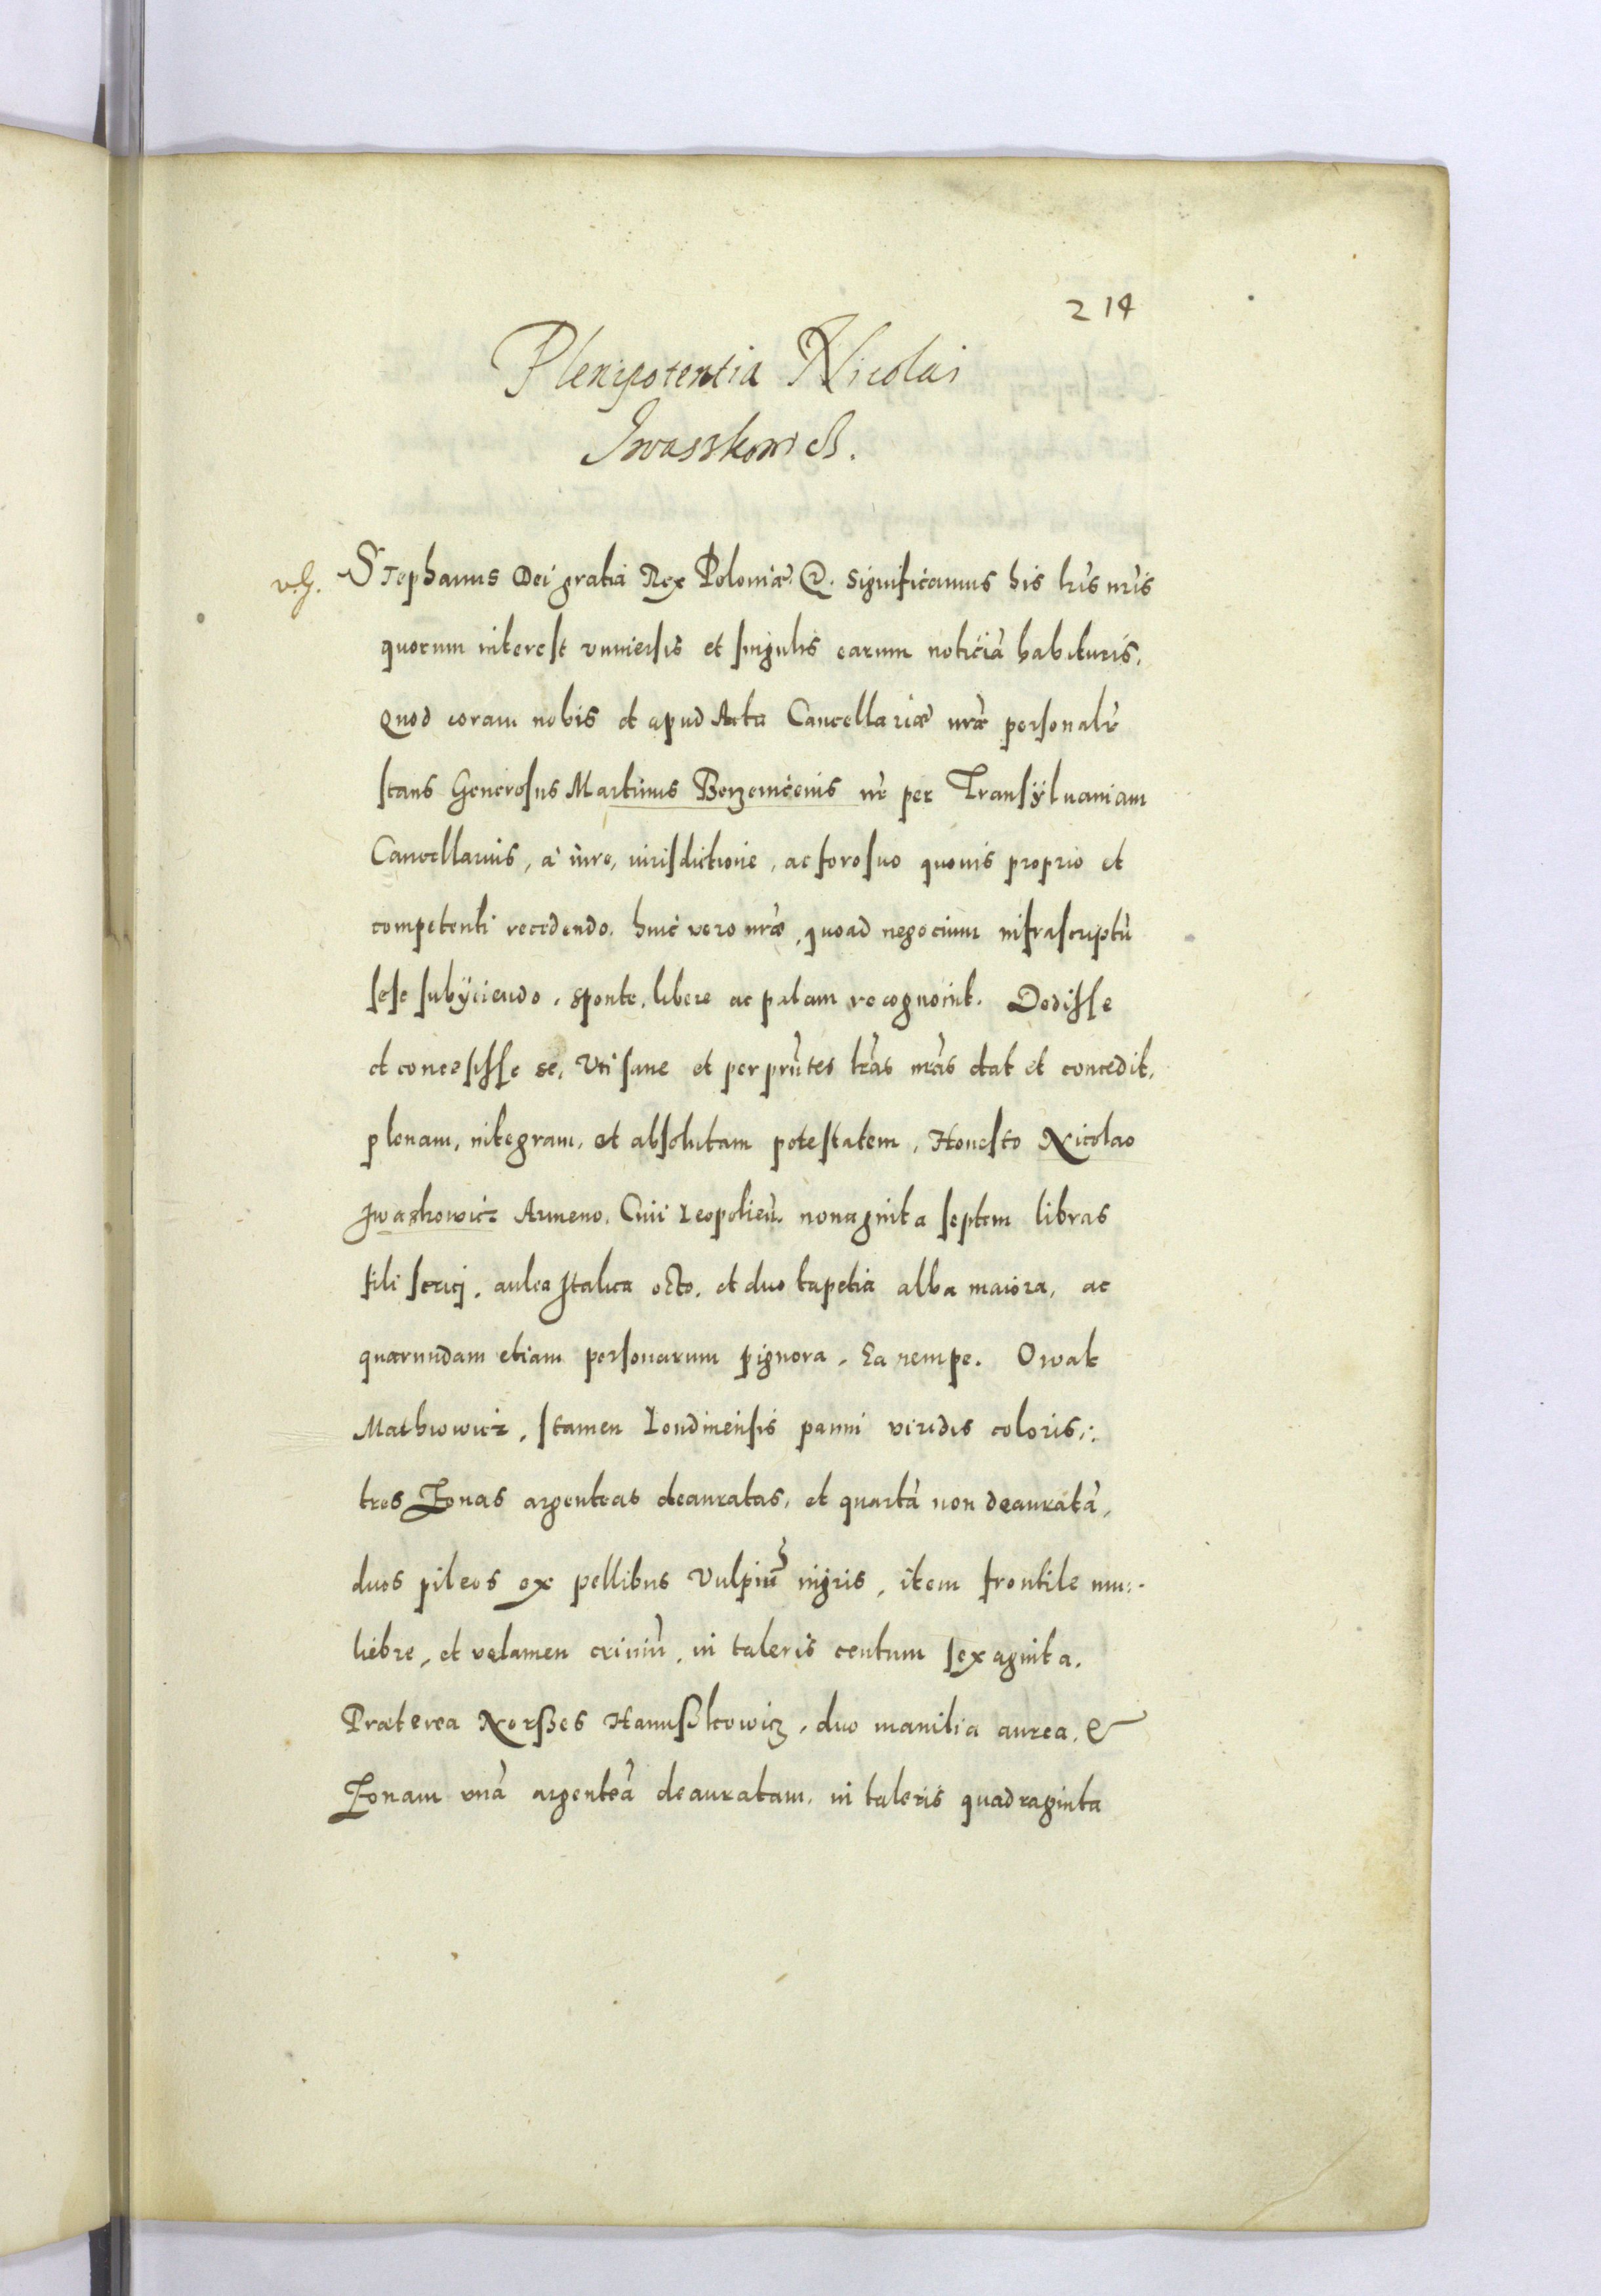 214
Plenipotentia Nicolai
Iwasskowicz.
v.g. Stephanus Dei gratia Rex Poloniæ &. significamus his lr̃is nr̃is
quorum interest vniuersis et singulis earum noticiã habituris.
Quod coram nobis et apud Acta Cancellariæ nr̃æ personalr̃
stans Generosus Martinus Berzeuiceus nr̃ per Transÿluaniam
Cancellarius, à iure, iurisdictione, ac foro suo quouis proprio et
competenti recedendo. huic vero nr̃o, quoad negocium infrascriptũ
sese subÿciendo, sponte, libere ac palam recognouit. Dedisse
et concessisse se, Vti sane et per pr̃ntes lr̃as nr̃as dat et concedit,
plenam, integram, et absolutam potestatem, Honesto Nicolao
Iwaskowicz Armeno, Ciui Leopolieñ. nonaginta septem libras
fili serici, aulea Italica octo, et duo tapetia alba maiora, ac
quarundam etiam personarum pignora. Ea nempe. Owak
Mathiowicz, stamen Londinensis panni viridis coloris,:
tres Zonas argenteas deauratas, et quartã non deauratã,
duos pileos ex pellibus Vulpiũ nigris, item frontile mu:
liebre, et velamen criniũ, in taleris centum sexaginta.
Præterea Norßes Hanußkowicz, duo manilia aurea, &
Zonam vnã argenteã deauratam, in taleris quadraginta